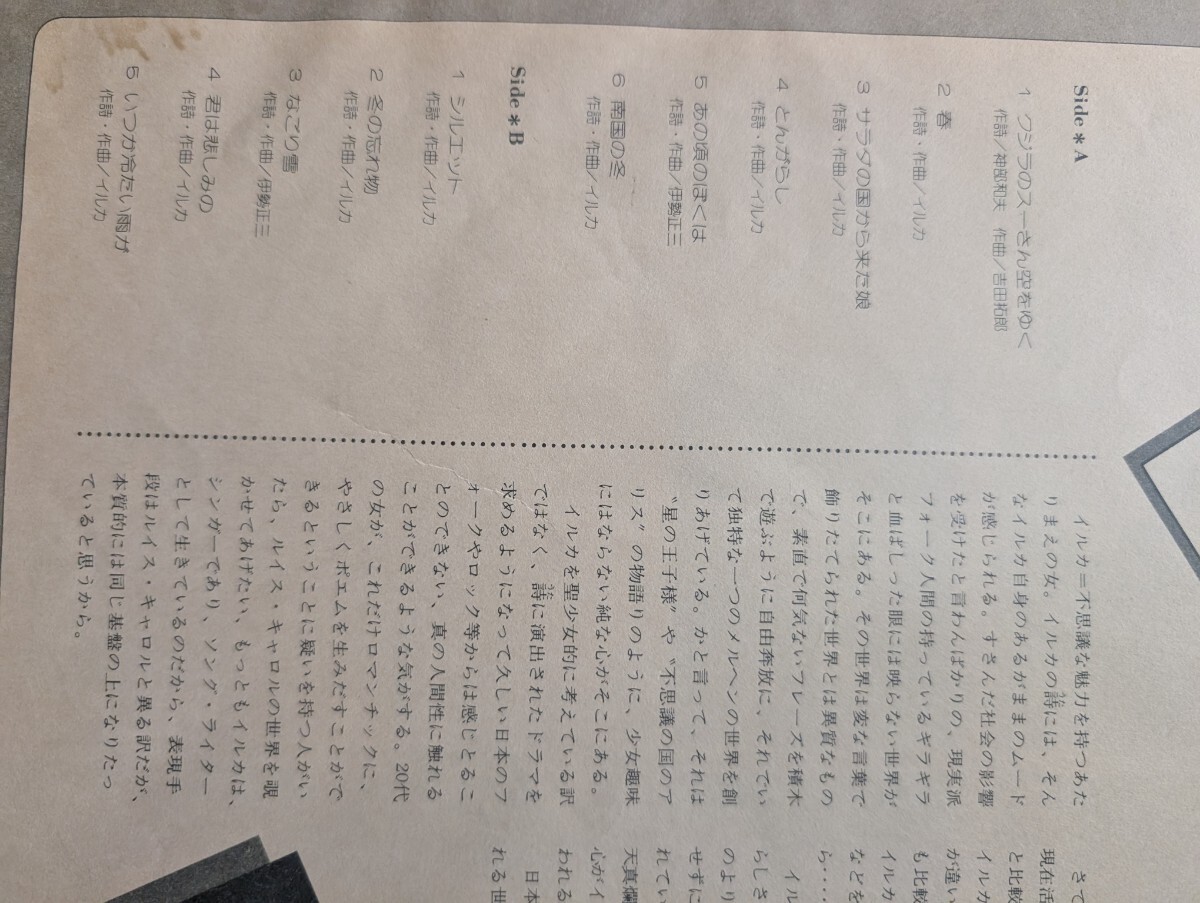 Side＊A
1 クジラのスーさん空をゆく
作詩／神部和夫 作曲／吉田拓郎
2 春
作詩・作曲／イルカ
3 サラダの国から来た娘
作詩・作曲／イルカ
4 とんがらし
作詩・作曲／イルカ
5 あの頃のぼくは
作詩・作曲／伊勢正三
6 南国の冬
作詩・作曲／イルカ
Side＊B
1 シルエット
作詩・作曲／イルカ
2 冬の忘れ物
作詩・作曲／イルカ
3 なごり雪
作詩・作曲／伊勢正三
4 君は悲しみの
作詩・作曲／イルカ
5 いつか冷たい雨が
作詩・作曲／イルカ
イルカ＝不思議な魅力を持つあた
りまえの女。イルカの詩には、そん
なイルカ自身のあるがままのムード
が感じられる。すさんだ社会の影響
を受けたと言わんばかりの、現実派
フォーク人間の持っているギラギラ
と血ばしった眼には映らない世界が
そこにある。その世界は変な言葉で
飾りたてられた世界とは異質なもの
で、素直で何気ないフレーズを積木
で遊ぶように自由奔放に、それでい
て独特な一つのメルヘンの世界を創
りあげている。かと言って、それは
〝星の王子様〟や〝不思議の国のア
リス〟の物語りのように、少女趣味
にはならない純な心がそこにある。
イルカを聖少女的に考えている訳
ではなく、詩に演出されたドラマを
求めるようになって久しい日本のフ
ォークやロック等からは感じとるこ
とのできない、真の人間性に触れる
ことができるような気がする。20代
の女が、これだけロマンチックに、
やさしくポエムを生みだすことがで
きるということに疑いを持つ人がい
たら、ルイス・キャロルの世界を覗
かせてあげたい、もっともイルカは、
シンガーであり、ソング・ライター
として生きているのだから、表現手
段はルイス・キャロルと異る訳だが、
本質的には同じ基盤の上になりたっ
ていると思うから。
さて
現在活
と比較
イルカ
が違い
も比較
イルカ
などを
ら‥‥
イル
らしさ
のより
せずに
れてい
天真爛
心がイ
われる
日本
れる世